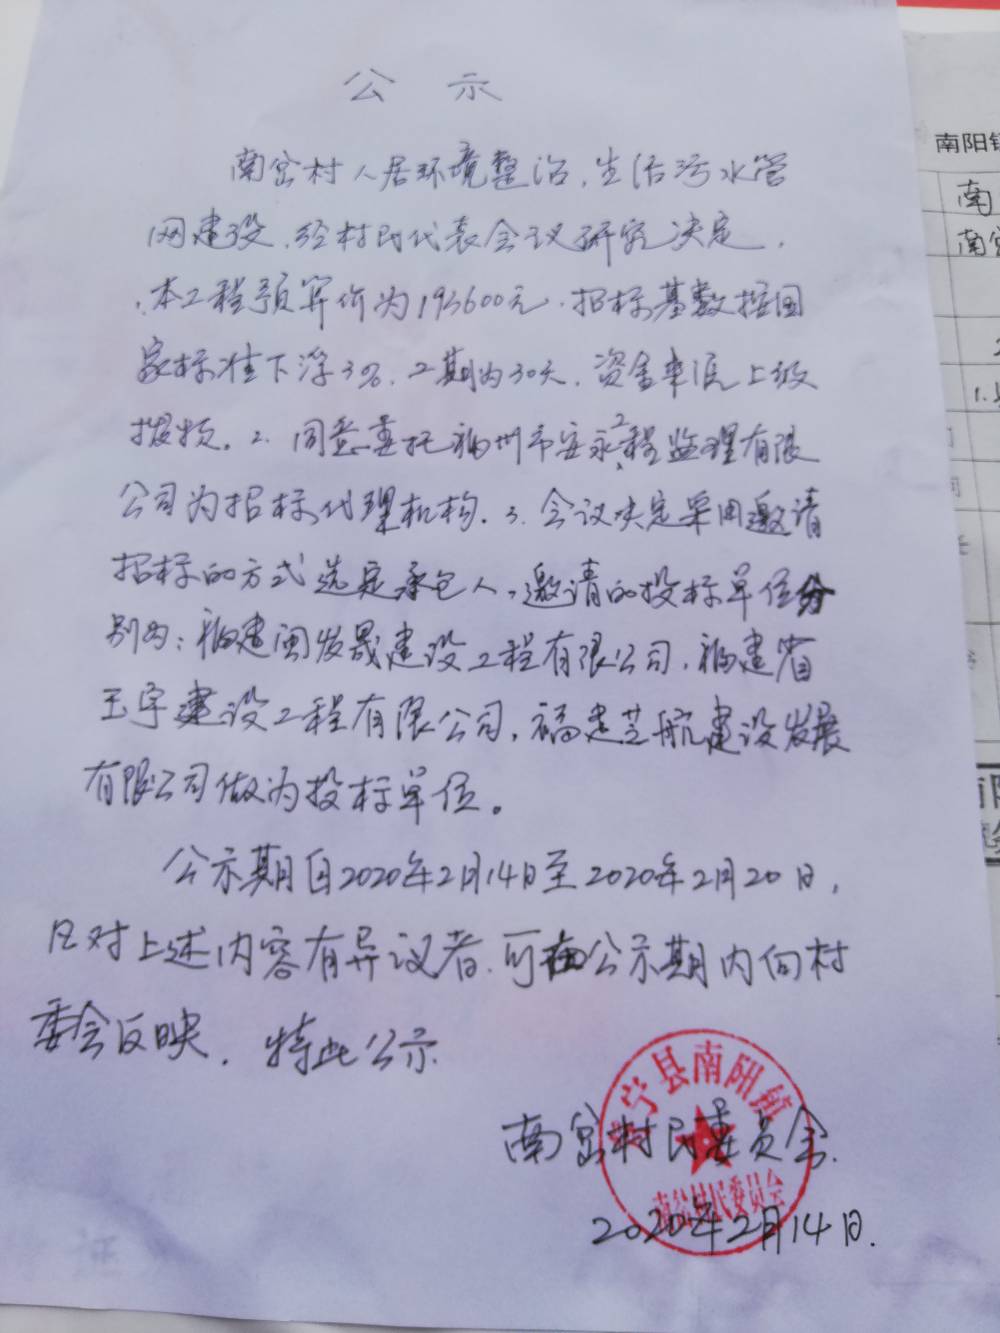 公 示
南岔村人居环境整治,生活污水管
网建设,经村民代表会议研究决定,
、本工程预算价为193600元,招标基数按国
家标准下浮3%,工期为30天,资金来源上级
拨款。2、同意委托福州市安永工程监理有限
公司为招标代理机构。3、会议决定采用邀请
招标的方式选定承包人,邀请的投标单位分
别为:福建闽发晟建设工程有限公司,福建省
玉宇建设工程有限公司,福建芝航建设发展
有限公司做为投标单位。
公示期自2020年2月14日至2020年2月20日,
凡对上述内容有异议者,可在公示期内向村
委会反映。特此公示
南岔村民委员会.
2020年2月14日.
宁县南阳镇
南岔村民委员会
南阳镇
南
南岔
1.